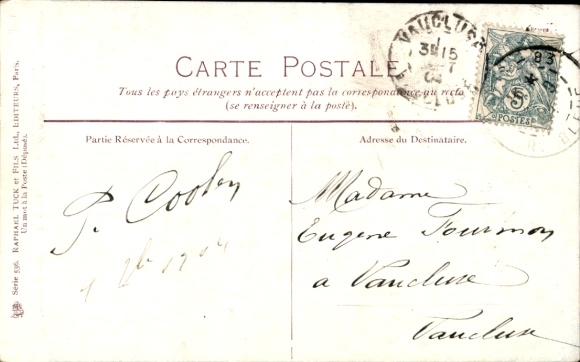 CARTE POSTALE
Tous les pays étrangers n'acceptent pas la correspondance au recto
(se renseigner à la poste).
Partie Réservée à la Correspondance.
Adresse du Destinataire.
Série 536. RAPHAEL TUCK et FILS Ltd., EDITEURS, Paris.
Un mot à la Poste (Déposé).
VAUCLUSE
3E 15
04
5
POSTES
83
P.
1904
Madame
Eugène Tournon
a Vaucluse
Vaucluse